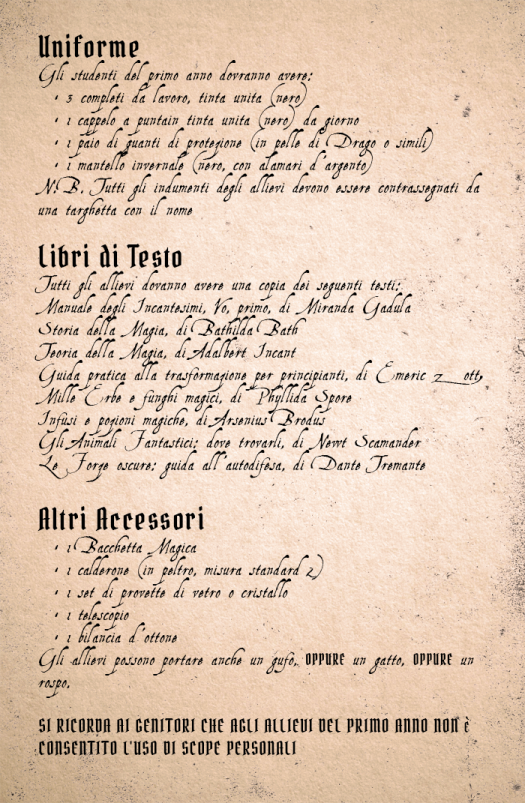 Uniforme
Gli studenti del primo anno dovranno avere:
· 3 completi da lavoro, tinta unita (nero)
· 1 cappelo a puntain tinta unita (nero) da giorno
· 1 paio di guanti di protezione (in pelle di Drago o simili)
· 1 mantello invernale (nero, con alamari d'argento)
N.B. Tutti gli indumenti degli allievi devono essere contrassegnati da
una targhetta con il nome
Libri di Testo
Tutti gli allievi dovanno avere una copia dei seguenti testi:
Manuale degli Incantesimi, Vo, primo, di Miranda Gadula
Storia della Magia, di Bathilda Bath
Teoria della Magia, di Adalbert Incant
Guida pratica alla trasformazione per principianti, di Emeric Zott,
Mille Erbe e funghi magici, di Phyllida Spore
Infusi e pozioni magiche, di Arsenius Brodus
Gli Animali Fantastici: dove trovarli, di Newt Scamander
Le Forze oscure: guida all'autodifesa, di Dante Tremante
Altri Accessori
· 1 Bacchetta Magica
· 1 calderone (in peltro, misura standard 2)
· 1 set di provette di vetro o cristallo
· 1 telescopio
· 1 bilancia d'ottone
Gli allievi possono portare anche un gufo, OPPURE un gatto, OPPURE un
rospo.
SI RICORDA AI GENITORI CHE AGLI ALLIEVI DEL PRIMO ANNO NON È
CONSENTITO L'USO DI SCOPE PERSONALI